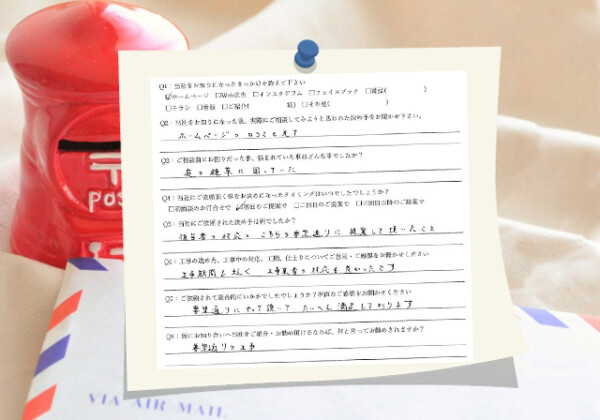 Q1：当社をお知りになったきっかけを教えて下さい
☑ホームページ □Web広告 □インスタグラム □フェイスブック □雑誌( )
□チラシ □看板 □ご紹介( 様) □その他( )
Q2：当社をお知りになった後、実際にご相談してみようと思われた決め手をお聞かせ下さい。
ホームページの口コミを見て
Q3：ご相談前にお困りだった事、悩まれていた事はどんな事でしたか？
の雑草に困っていた
Q4：当社にご依頼頂く事をお決めになったタイミングはいつでしたでしょうか？
□初回談のお打合せで ☑初回のご提案で □二回目のご提案で □三回目以降のご提案で
Q5：当社にご依頼された決め手は何でしたか？
担当者の対応と こちらの要望通りに提案して頂いたこと
Q6：工事の進め方、工事中の対応、工期、仕上りについてご意見・ご感想をお聞かせください
工事期間も短く 工事業者の対応も良かったです
Q7：ご依頼されて総合的にいかがでしたでしょうか？率直なご感想をお聞かせください
要望通りにやって頂いて たいへん満足しております
Q8：仮にお知り合いへ当社をご紹介・お勧め頂けるならば、何と言ってお勧めされますか？
要望通りの工事
〒
POS
VIA AIR MAIL